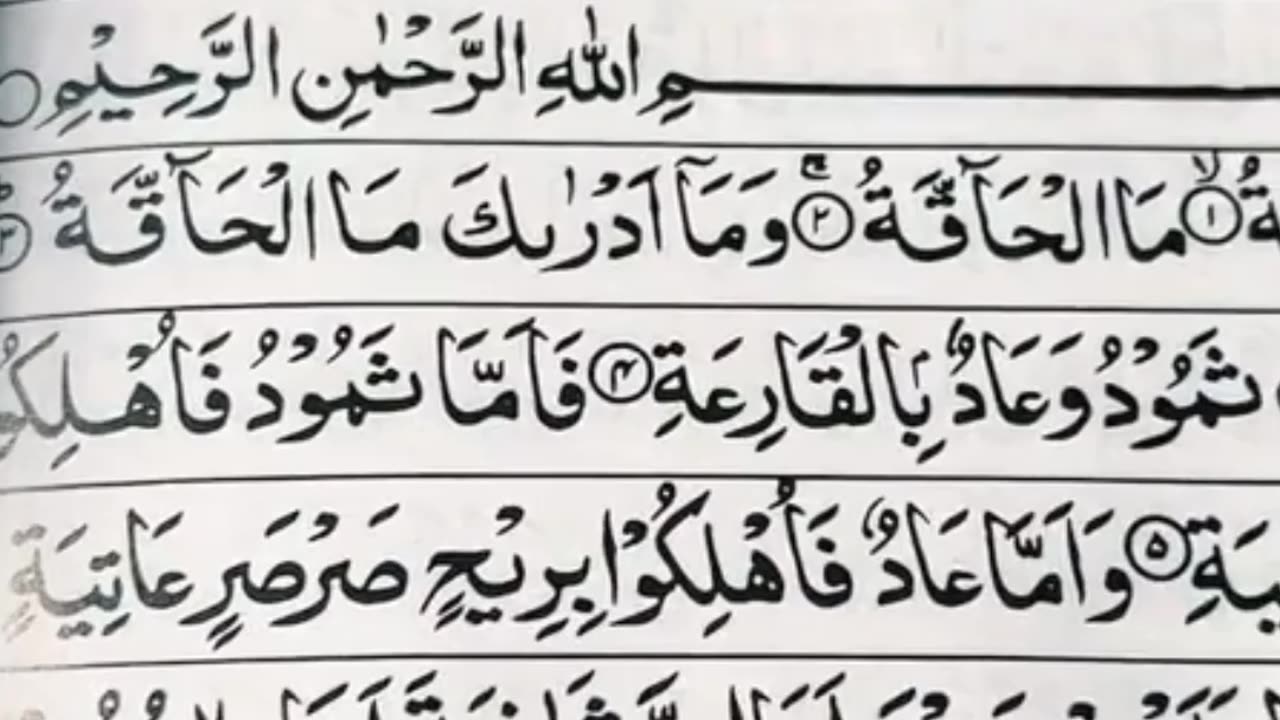 مِ اللّٰهِ الرَّحْمٰنِ الرَّحِيْمِ
مَا الْحَآقَّةُ ۚ﴿۲﴾ وَمَآ اَدْرٰىكَ مَا الْحَآقَّةُ ﴿۳﴾
ثَمُوْدُ وَعَادٌۢ بِالْقَارِعَةِ ﴿۴﴾ فَاَمَّا ثَمُوْدُ فَاُهْلِكُو
﴿۵﴾ وَاَمَّا عَادٌ فَاُهْلِكُوْا بِرِيْحٍ صَرْصَرٍ عَاتِيَةٍ